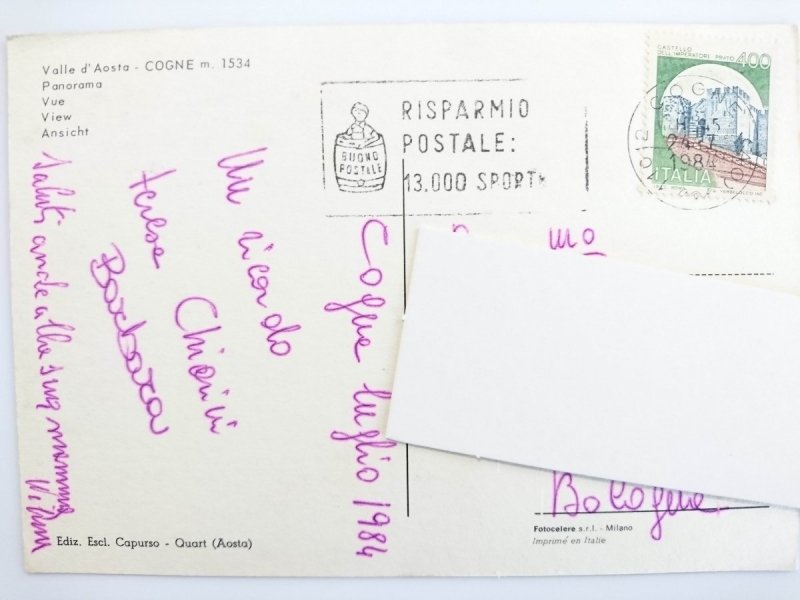 Valle d'Aosta - COGNE m. 1534
Panorama
Vue
View
Ansicht
BUONO
POSTALE
RISPARMIO
POSTALE:
13.000 SPORT
CASTELLO
DELL'IMPERATORE PRATO 400
ITALIA
COGNE
1984
Cogne luglio 1984
Un ricordo
Chiarini
Barbara
Saluti anche alla sua mamma
mo
Bologna
Ediz. Escl. Capurso - Quart (Aosta)
Fotocelere s.r.l. - Milano
Imprimé en Italie